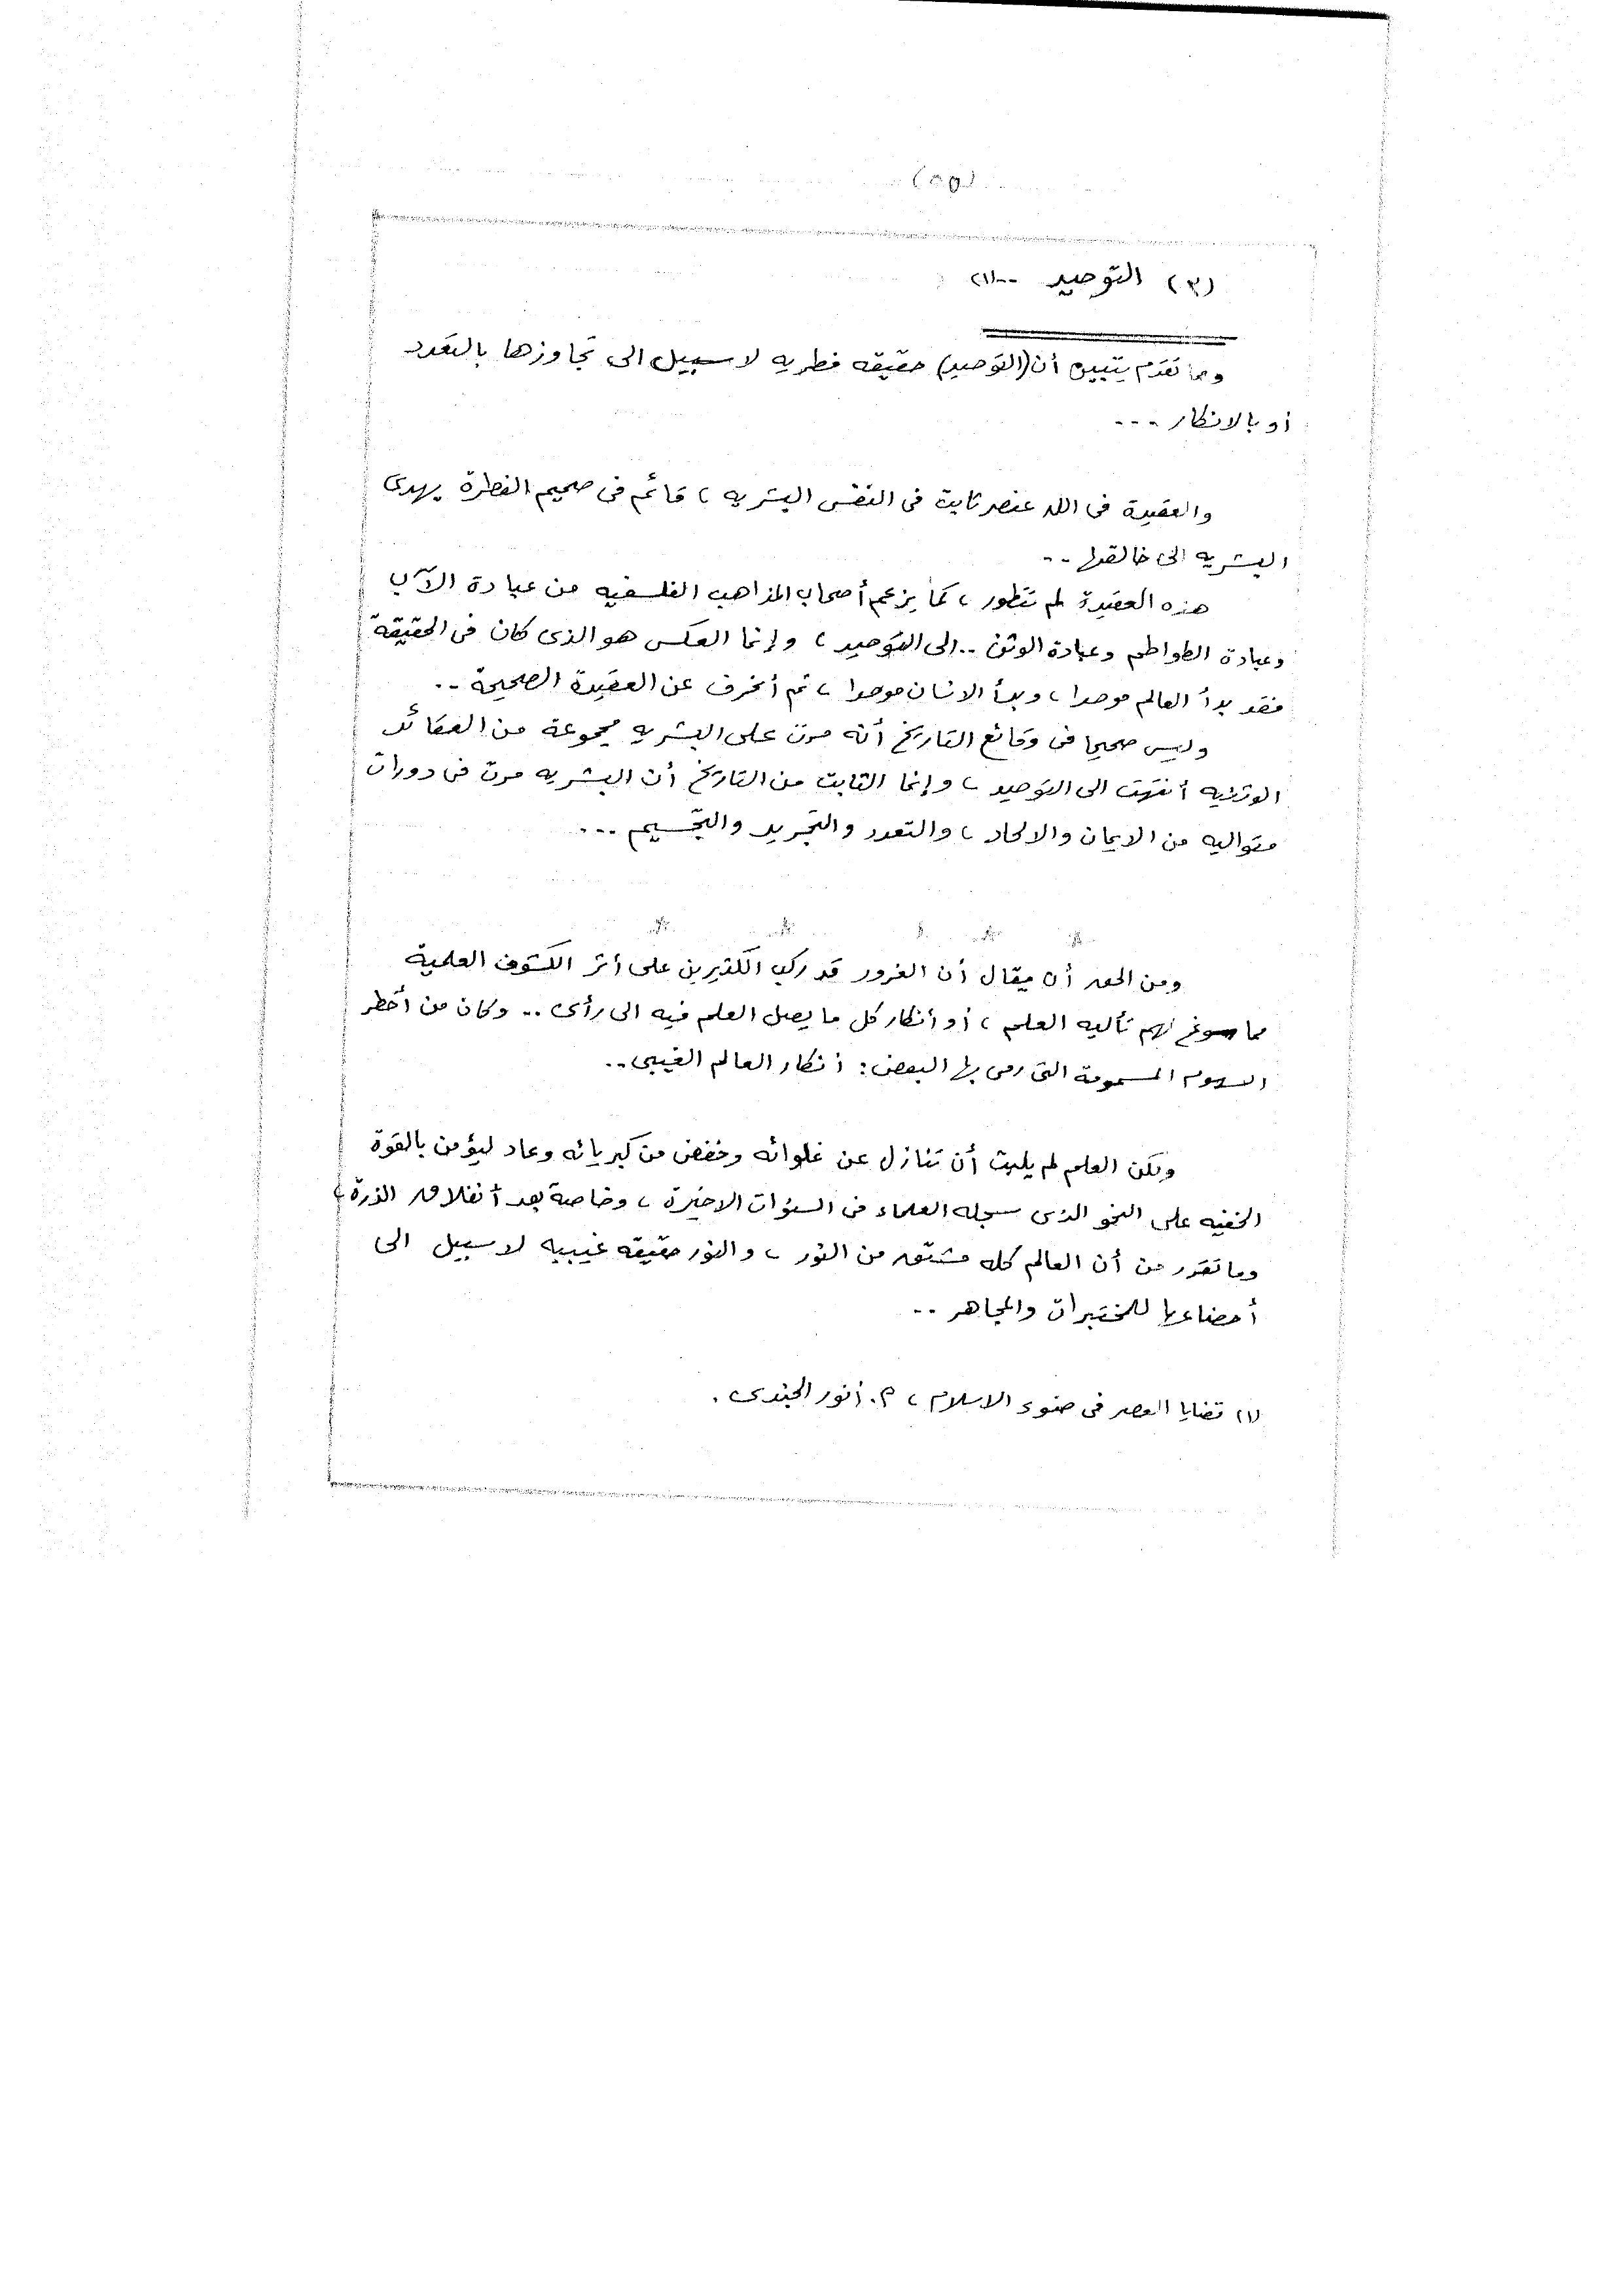 (٣) التوحيد --(١)
ومما تقدم يتبين أن (التوحيد) حقيقه فطريه لا سبيل الى تجاوزها بالتعدد
أو بالانكار ---
والعقيدة فى الله عنصر ثابت فى النفس البشريه ، قائم فى صميم الفطرة يهدى
البشريه الى خالقها --
هذه العقيدة لم تتطور ، كما يزعم أصحاب المذاهب الفلسفيه من عبادة الآب
وعبادة الطواطم وعبادة الوثن .. الى التوحيد ، وإنما العكس هو الذى كان فى الحقيقة
فقد بدأ العالم موحدا ، وبدأ الانسان موحدا ، ثم أنحرف عن العقيدة الصحيحة --
وليس صحيحا فى وقائع التاريخ أنه مرت على البشريه مجموعة من العقائد
الوثنيه أنتهت الى التوحيد ، وإنما الثابت من التاريخ أن البشريه مرت فى دورات
متواليه من الايمان والالحاد ، والتعدد والتجريد والتجسيم ---
ومن الحق أن يقال أن الغرور قد ركب الكثيرين على أثر الكشوف العلمية
مما سوغ لهم تأليه العلم ، أو أنكار كل ما يصل العلم فيه الى رأى .. وكان من أخطر
السهوم المسمومة التى رمى بها البعض : أنكار العالم الغيبى ..
ولكن العلم لم يلبث أن تنازل عن غلوائه وخفض من كبريائه وعاد ليؤمن بالقوة
الخفيه على النحو الذى سجله العلماء فى السنوات الاخيرة ، وخاصة بعد أنفلاق الذرة ،
وما تقرر من أن العالم كله مشتق من النور ، والنور حقيقه غيبيه لا سبيل الى
أخضاعها للمختبرات والمجاهر --
(١) قضايا العصر فى ضوء الاسلام ، م. أنور الجندى .